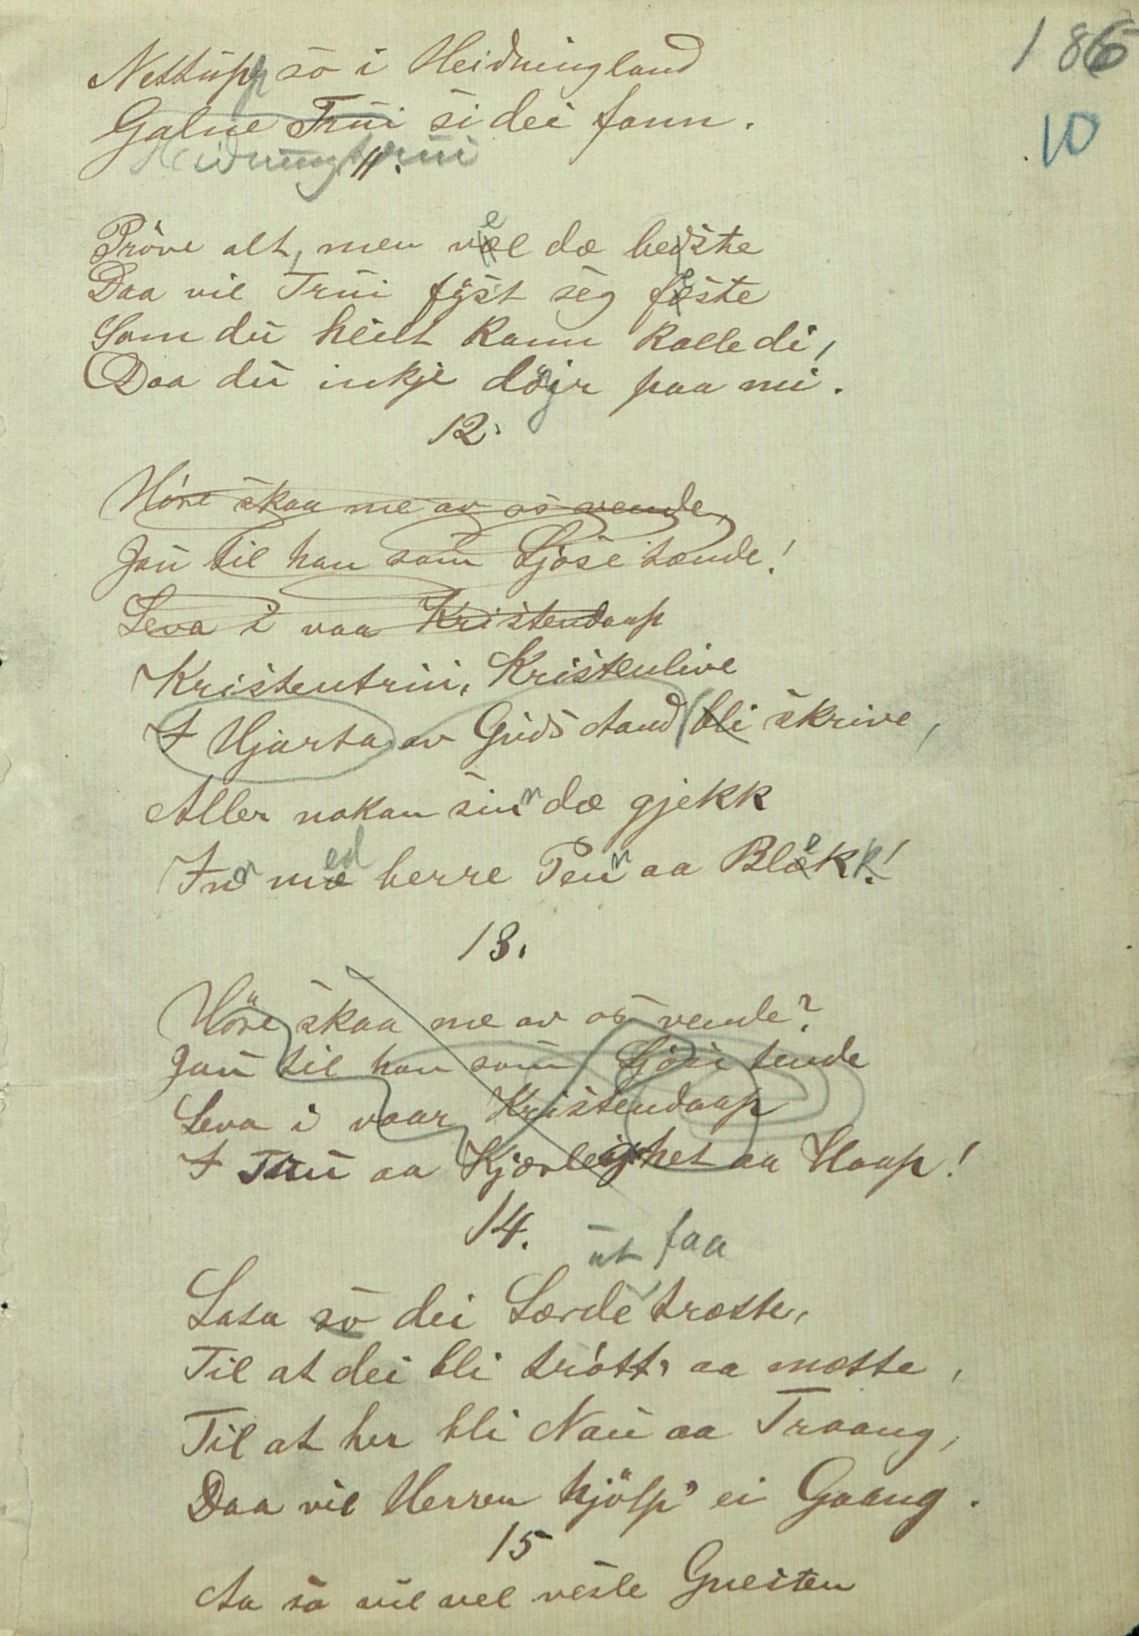 186
10
Nettupp so i Heidningland
Galne Trui si dei fann.
Heidningtrui
11.
Pröve alt, men vel dæ bedste
Daa vil Trui fyst seg feste
Som du heilt kann kalle di,
Daa du inkje döjr paa mi.
12.
Höre skaa me av os vende,
Jau til han som Ljose tænde!
Leva i vaa Kristendaap
Kristentrui, Kristenlive
I Hjarta av Guds Aand bli skrive,
Aller nokan sinn dæ gjekk
Inn med herre Penn aa Blekk!
13.
Höre skaa me av os vende?
Jau til han som Ljose tende
Leva i vaar Kristendaap
I Trui aa Kjærleighet aa Haap!
14.
ut faa
Lata so dei Lærde trætte,
Til at dei bli trött' aa mætte,
Til at her bli Nau aa Traang,
Daa vil Herren hjölp' ei Gaang.
15
Aa so vil vel vesle Gneisten